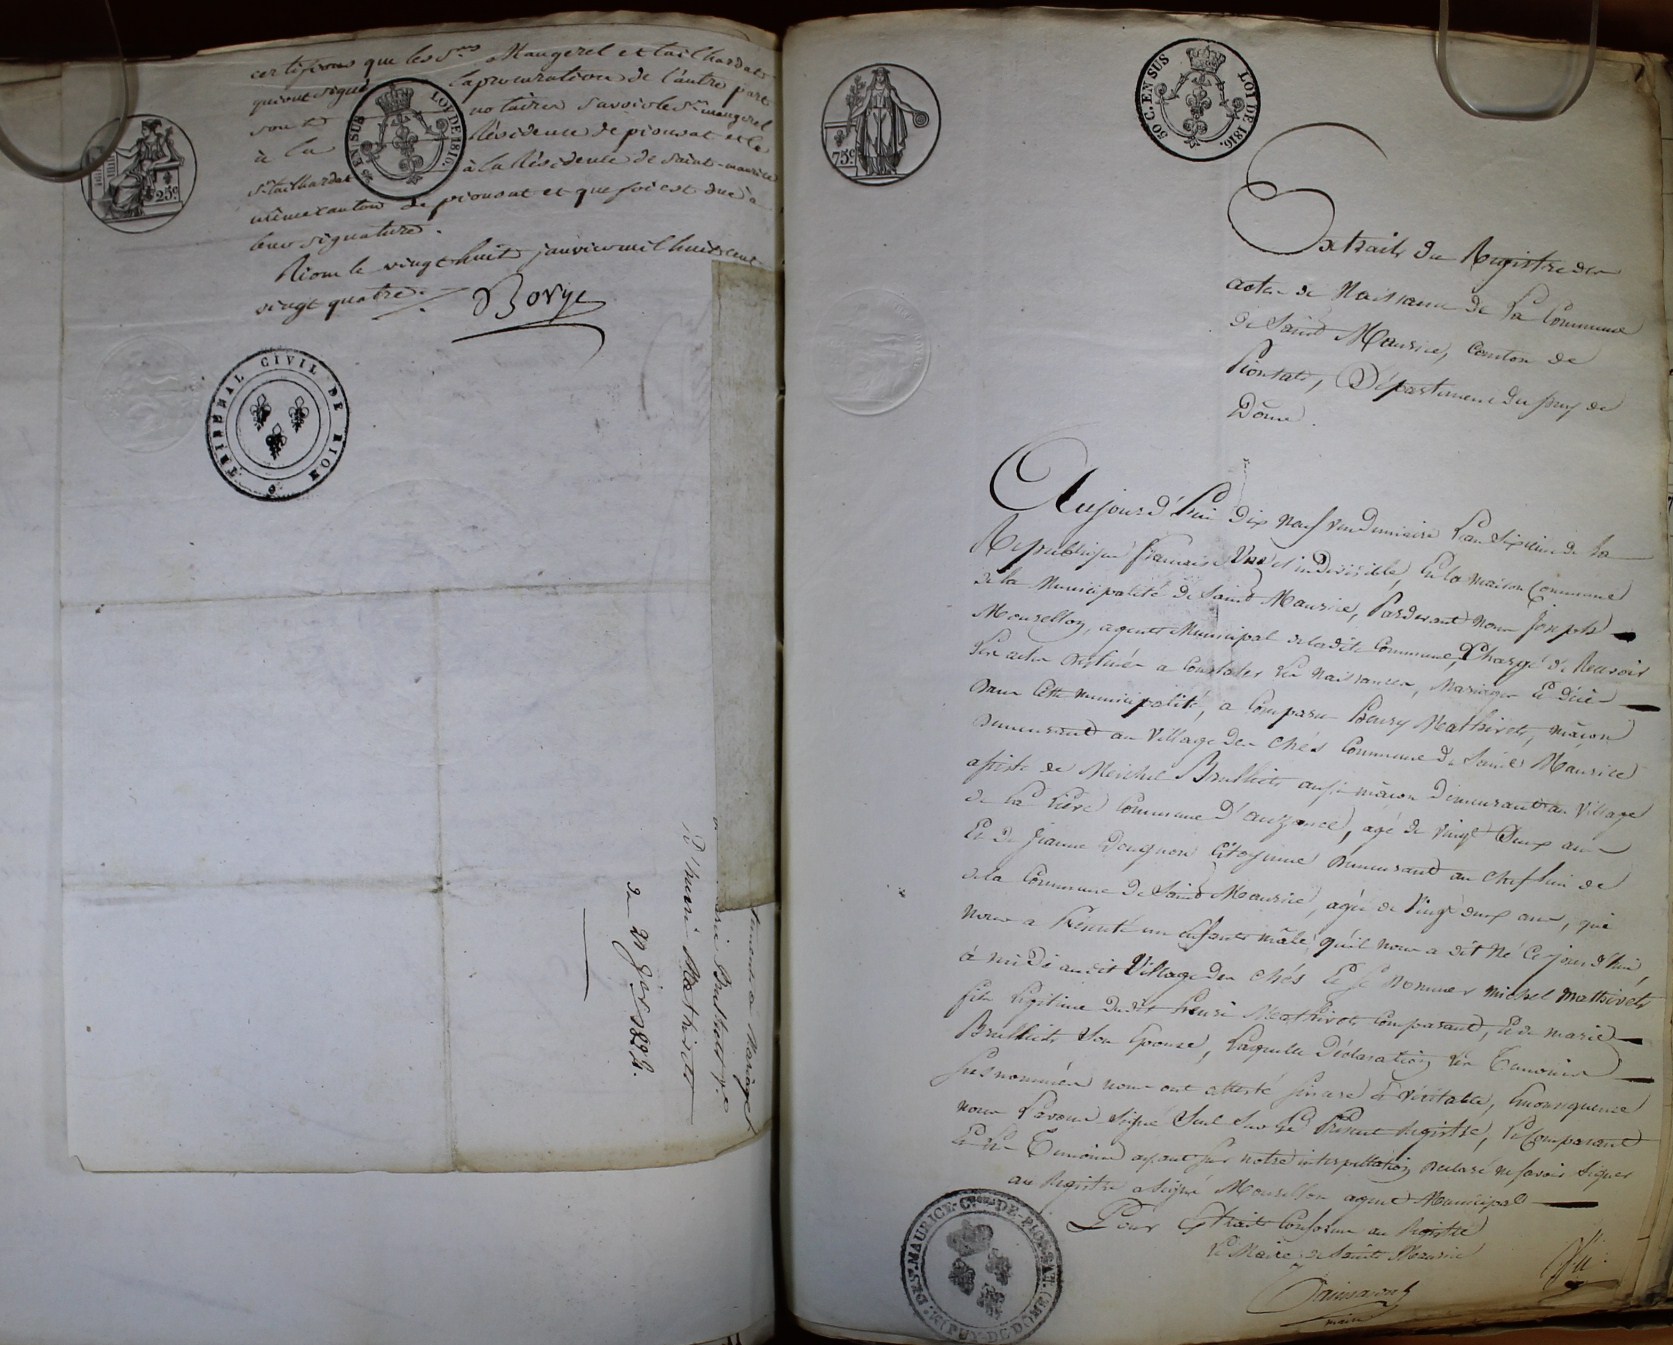 certifions que les Srs Maugerel et tailhardat
qui ont signé la procuration de l'autre part
sont notaires savoir le Sr maugerel
à la Résidence de pionsat et le
Sr tailhardat à la Résidence de saint-maurice
même canton de pionsat et que foi est due à
leur signature.
Riom le vingt huit janvier mil huit cent
vingt quatre.
Borye
EN SUS LOI DE 1816.
25c.
TRIBUNAL CIVIL DE RIOM
Mariage
Marie Brulliets
D'henri Mathivets
du 27 Jer 1824.
75c.
50 C. EN SUS LOI DE 1816.
Extrait du Registre des
actes de Naissance de la Commune
de Saint Maurice, Canton de
Pionsats, Département du puy de
Dôme.
Aujourd'hui dix neuf vendemiaire l'an sixieme de la
Republique francaise Une et indivisible, En la maison Commune
de la Municipalité de Saint Maurice, Pardevant nous Joseph
Mourellon, agent Municipal de ladite Commune, Chargé de Recevoir
les actes destinés a Constater les Naissances, Mariages et décés
dans cette municipalité, a Comparu henry Mathivets, mâçon
demeurant au Village des Chés Commune de Saint Maurice
assisté de Meichel Brulliets aussi mâcon demeurant au Village
de la Commune d'auzance, agé de vingt deux ans
Et de Jeanne Dougnon Citoyenne demeurant au Chef lieu de
de la Commune de Saint Maurice, agée de Vingt deux ans, qui
nous a Présenté un Enfant mâle qu'il nous a dit Né Cejourd'hui
à midi audit Village des Chés Et se Nommer michel mathivets
fils légitime dudit henri Mathivets Comparant, et de marie
Brulliets Son Epouse, laquelle déclaration les Temoins
susnommés nous ont attesté sincere Et Véritable, Enconsequence
nous l'avons signé Seul Sur le Présent Registre, le Comparant
Et les Temoins ayant sur notre interpellation declaré ne savoir signer
au Registre a signé Mourellon agent Municipal
Pour Extrait Conforme au Registre
le Maire de Saint Maurice
maire
DE ST. MAURICE. CTON DE PIONSAT. (PUY-DE-DÔME)